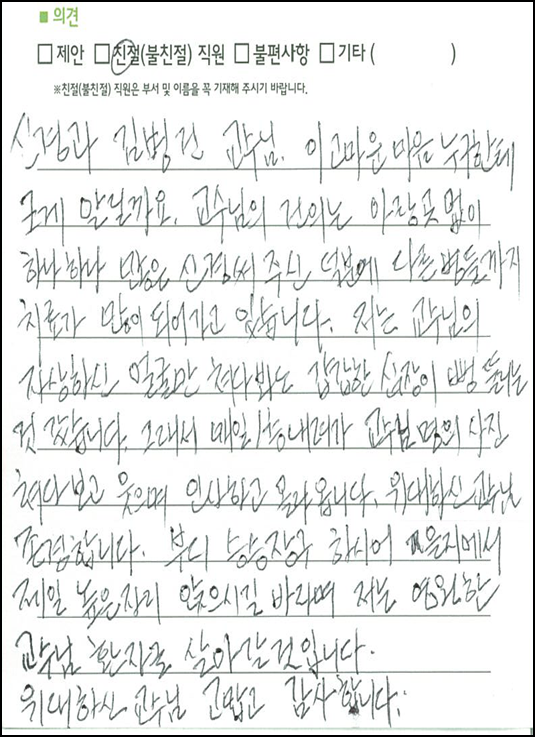 ■ 의견
□ 제안 □ 친절(불친절) 직원 □ 불편사항 □ 기타 ( )
※친절(불친절) 직원은 부서 및 이름을 꼭 기재해 주시기 바랍니다.
신경과 김병건 교수님. 이 고마운 마음 누구한테
드릴까요. 교수님의 아랑곳 없이
하나하나 많은 신경써 주신 덕분에 다른 병들까지
치료가 많이 되어가고 있습니다. 저는 교수님의
자상하신 얼굴만 쳐다봐도 갑갑한 심장이 뻥 뚫리는
것 같습니다. 그래서 매일 1층 내려가 교수님 명의 사진
쳐다보고 웃으며 인사하고 올라옵니다. 위대하신 교수님
존경합니다. 부디 승승장구 하시어 을지에서
제일 높은 자리 앉으시길 바라며 저는 영원한
교수님 환자로 살아갈 것입니다.
위대하신 교수님 고맙고 감사합니다.